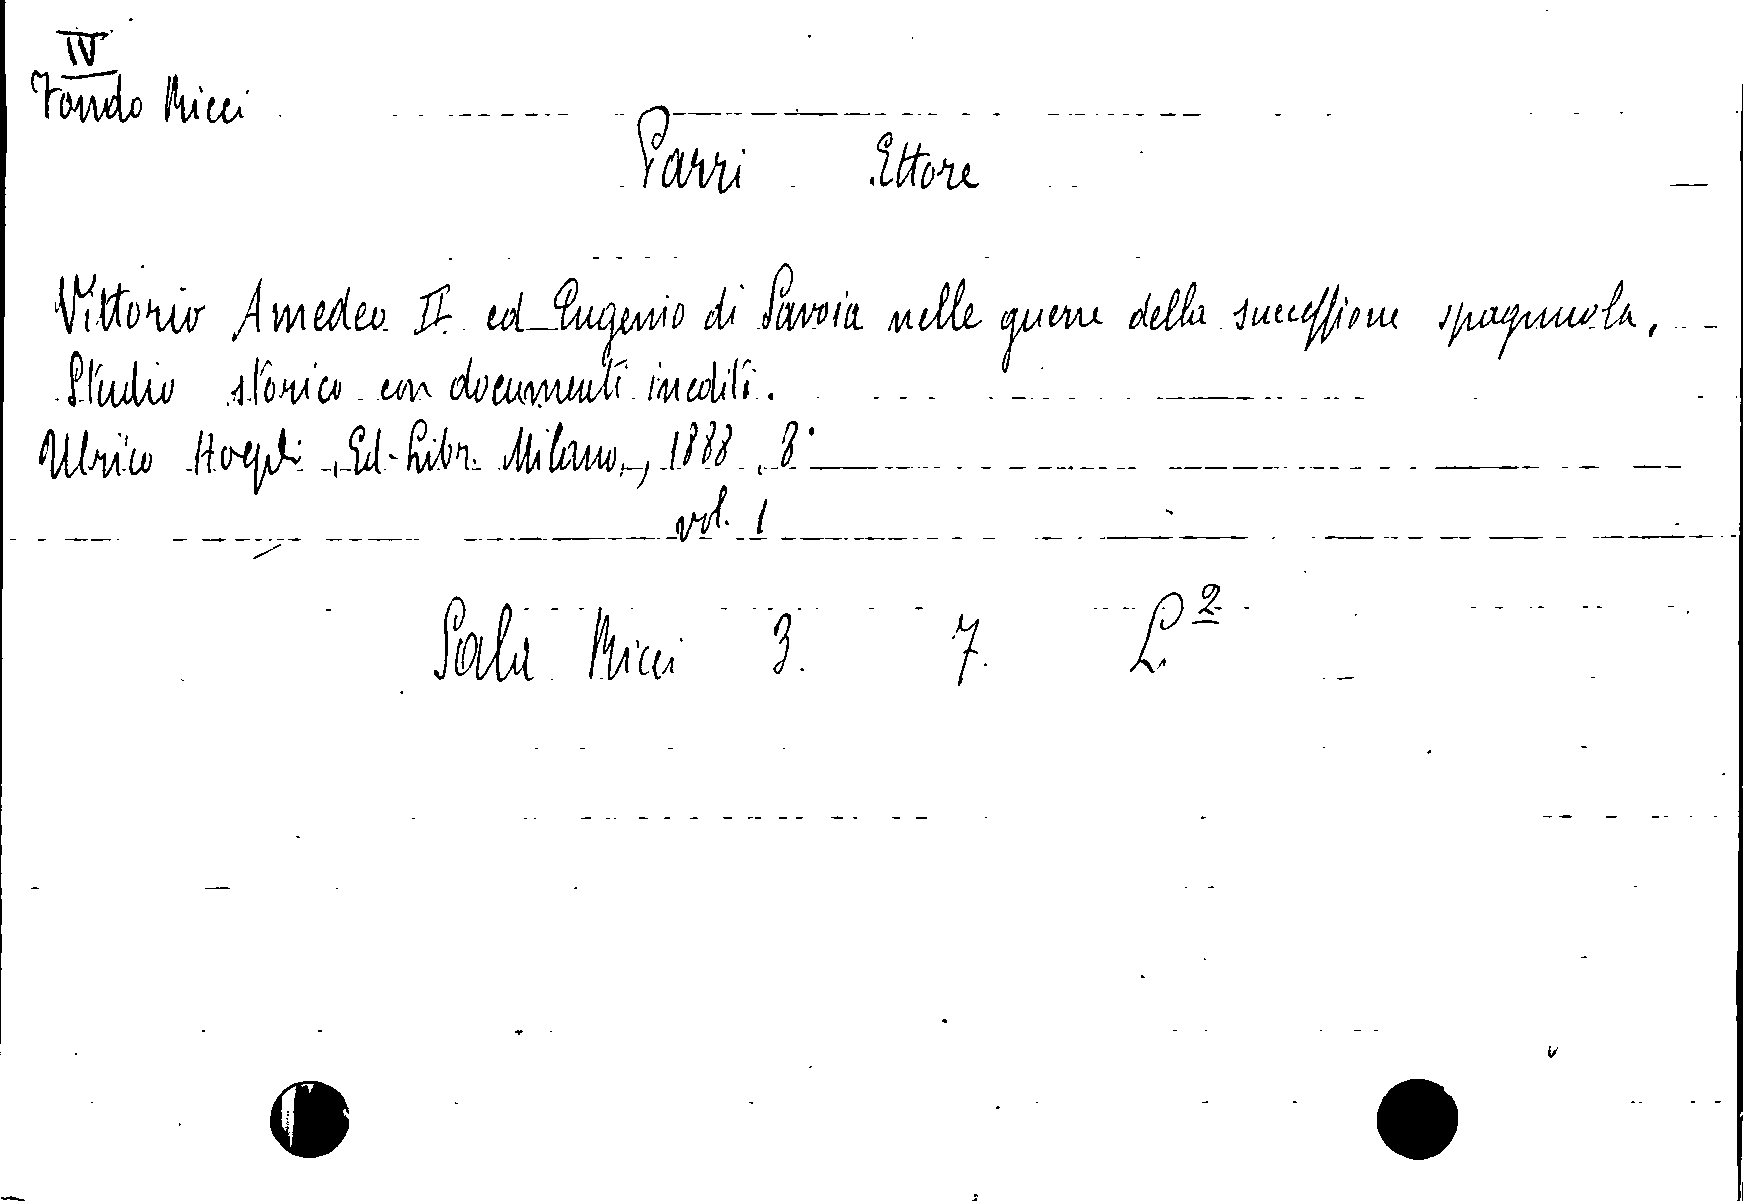 IV
Fondo Ricci
Parri Ettore
Vittorio Amedeo II ed Eugenio di Savoia nelle guerre della successione spagnuola.
Studio storico con documenti inediti.
Ulrico Hoepli, Ed-Libr. Milano, 1888, 8°
vol. 1
Sala Ricci 3. 7. L.2